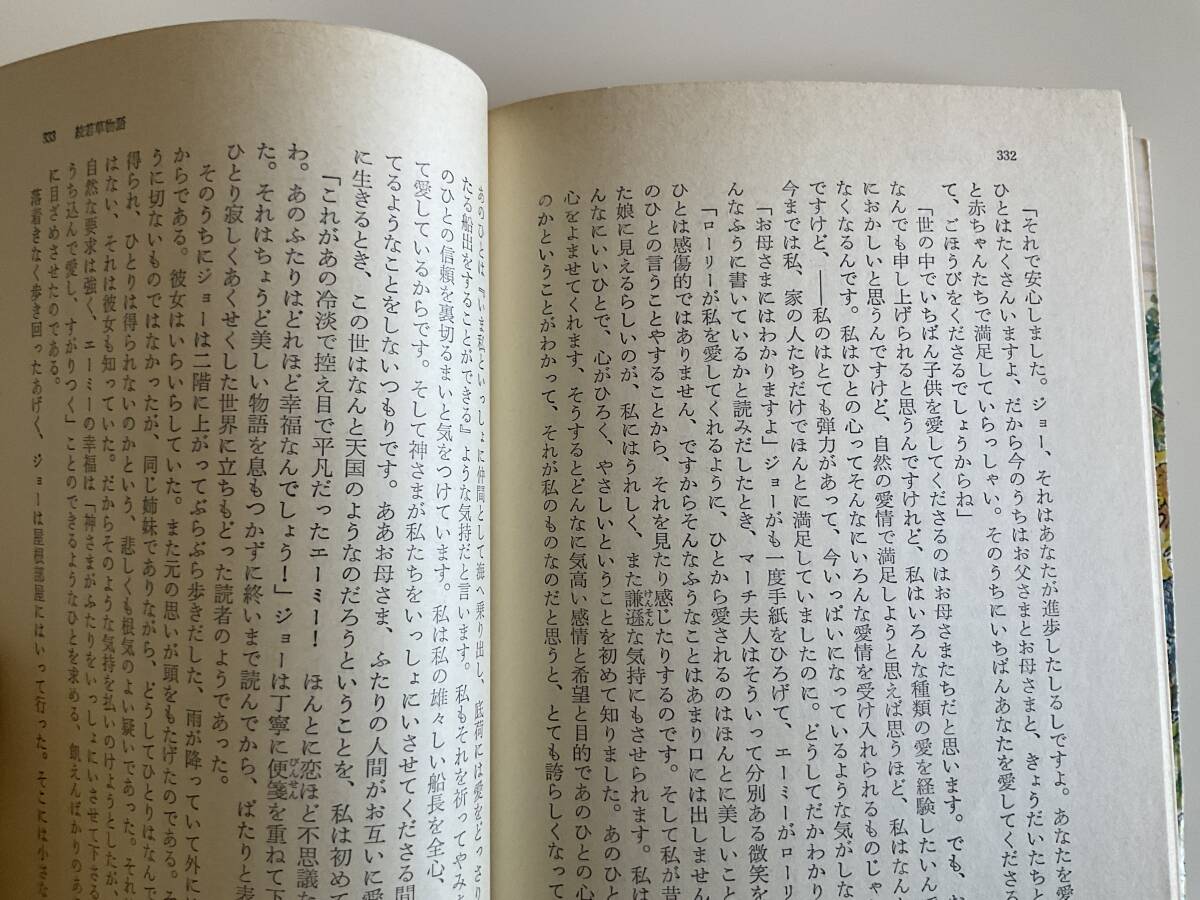 332
「それで安心しました。ジョー、それはあなたが進歩したしるしですよ。あなたを愛
ひとはたくさんいますよ、だから今のうちはお父さまとお母さまと、きょうだいたちと
と赤ちゃんたちで満足していらっしゃい。そのうちにいちばんあなたを愛してくださる
て、ごほうびをくださるでしょうからね」
「世の中でいちばん子供を愛してくださるのはお母さまたちだと思います。でも、お
なんでも申し上げられると思うんですけれど、私はいろんな種類の愛を経験したいんで
におかしいと思うんですけど、自然の愛情で満足しようと思えば思うほど、私はなんで
なくなるんです。私はひとの心ってそんなにいろんな愛情を受け入れられるものじゃ
ですけど、――私のはとても弾力があって、今いっぱいになっているような気がしな
今までは私、家の人たちだけでほんとに満足していましたのに。どうしてだかわかり
「お母さまにはわかりますよ」ジョーがも一度手紙をひろげて、エーミーがローリー
んなふうに書いているかと読みだしたとき、マーチ夫人はそういって分別ある微笑を
「ローリーが私を愛してくれるように、ひとから愛されるのはほんとに美しいこと
ひとは感傷的ではありません、ですからそんなふうなことはあまり口には出しません
のひとの言うことやすることから、それを見たり感じたりするのです。そして私が昔
た娘に見えるらしいのが、私にはうれしく、また謙遜な気持にもさせられます。私は
んなにいいひとで、心がひろく、やさしいということを初めて知りました。あのひと
心をよませてくれます、そうするとどんなに気高い感情と希望と目的であのひとの心
のかということがわかって、それが私のものなのだと思うと、とても誇らしくなっ
333　続若草物語
あのひとは『いま私といっしょに仲間として海へ乗り出し、底荷には愛をどっさり
たる船出をすることができる』ような気持だと言います。私もそれを祈ってやみ
のひとの信頼を裏切るまいと気をつけています。私は私の雄々しい船長を全心、
て愛しているからです。そして神さまが私たちをいっしょにいさせてくださる間
てるようなことをしないつもりです。ああお母さま、ふたりの人間がお互いに愛
に生きるとき、この世はなんと天国のようなのだろうということを、私は初めて
「これがあの冷淡で控え目で平凡だったエーミー！　ほんとに恋ほど不思議な
わ。あのふたりはどれほど幸福なんでしょう！」ジョーは丁寧に便箋を重ねて下
た。それはちょうど美しい物語を息もつかずに終いまで読んでから、ぱたりと表
ひとり寂しくあくせくした世界に立ちもどった読者のようであった。
そのうちにジョーは二階に上がってぶらぶら歩きだした、雨が降っていて外に
からである。彼女はいらいらしていた。また元の思いが頭をもたげたのである。そ
うに切ないものではなかったが、同じ姉妹でありながら、どうしてひとりはなんで
得られ、ひとりは得られないのかという、悲しくも根気のよい疑いであった。それ
はない、それは彼女も知っていた。だからそのような気持を払いのけようとしたが、
自然な要求は強く、エーミーの幸福は「神さまがふたりをいっしょにいさせて下さる
うち込んで愛し、すがりつく」ことのできるようなひとを求める、飢えんばかりのあ
に目ざめさせたのである。
落着きなく歩き回ったあげく、ジョーは屋根部屋にはいって行った。そこには小さな